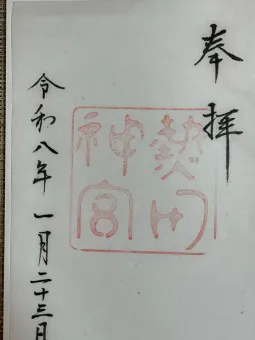 奉拝
熱田
神宮
令和八年一月二十三日